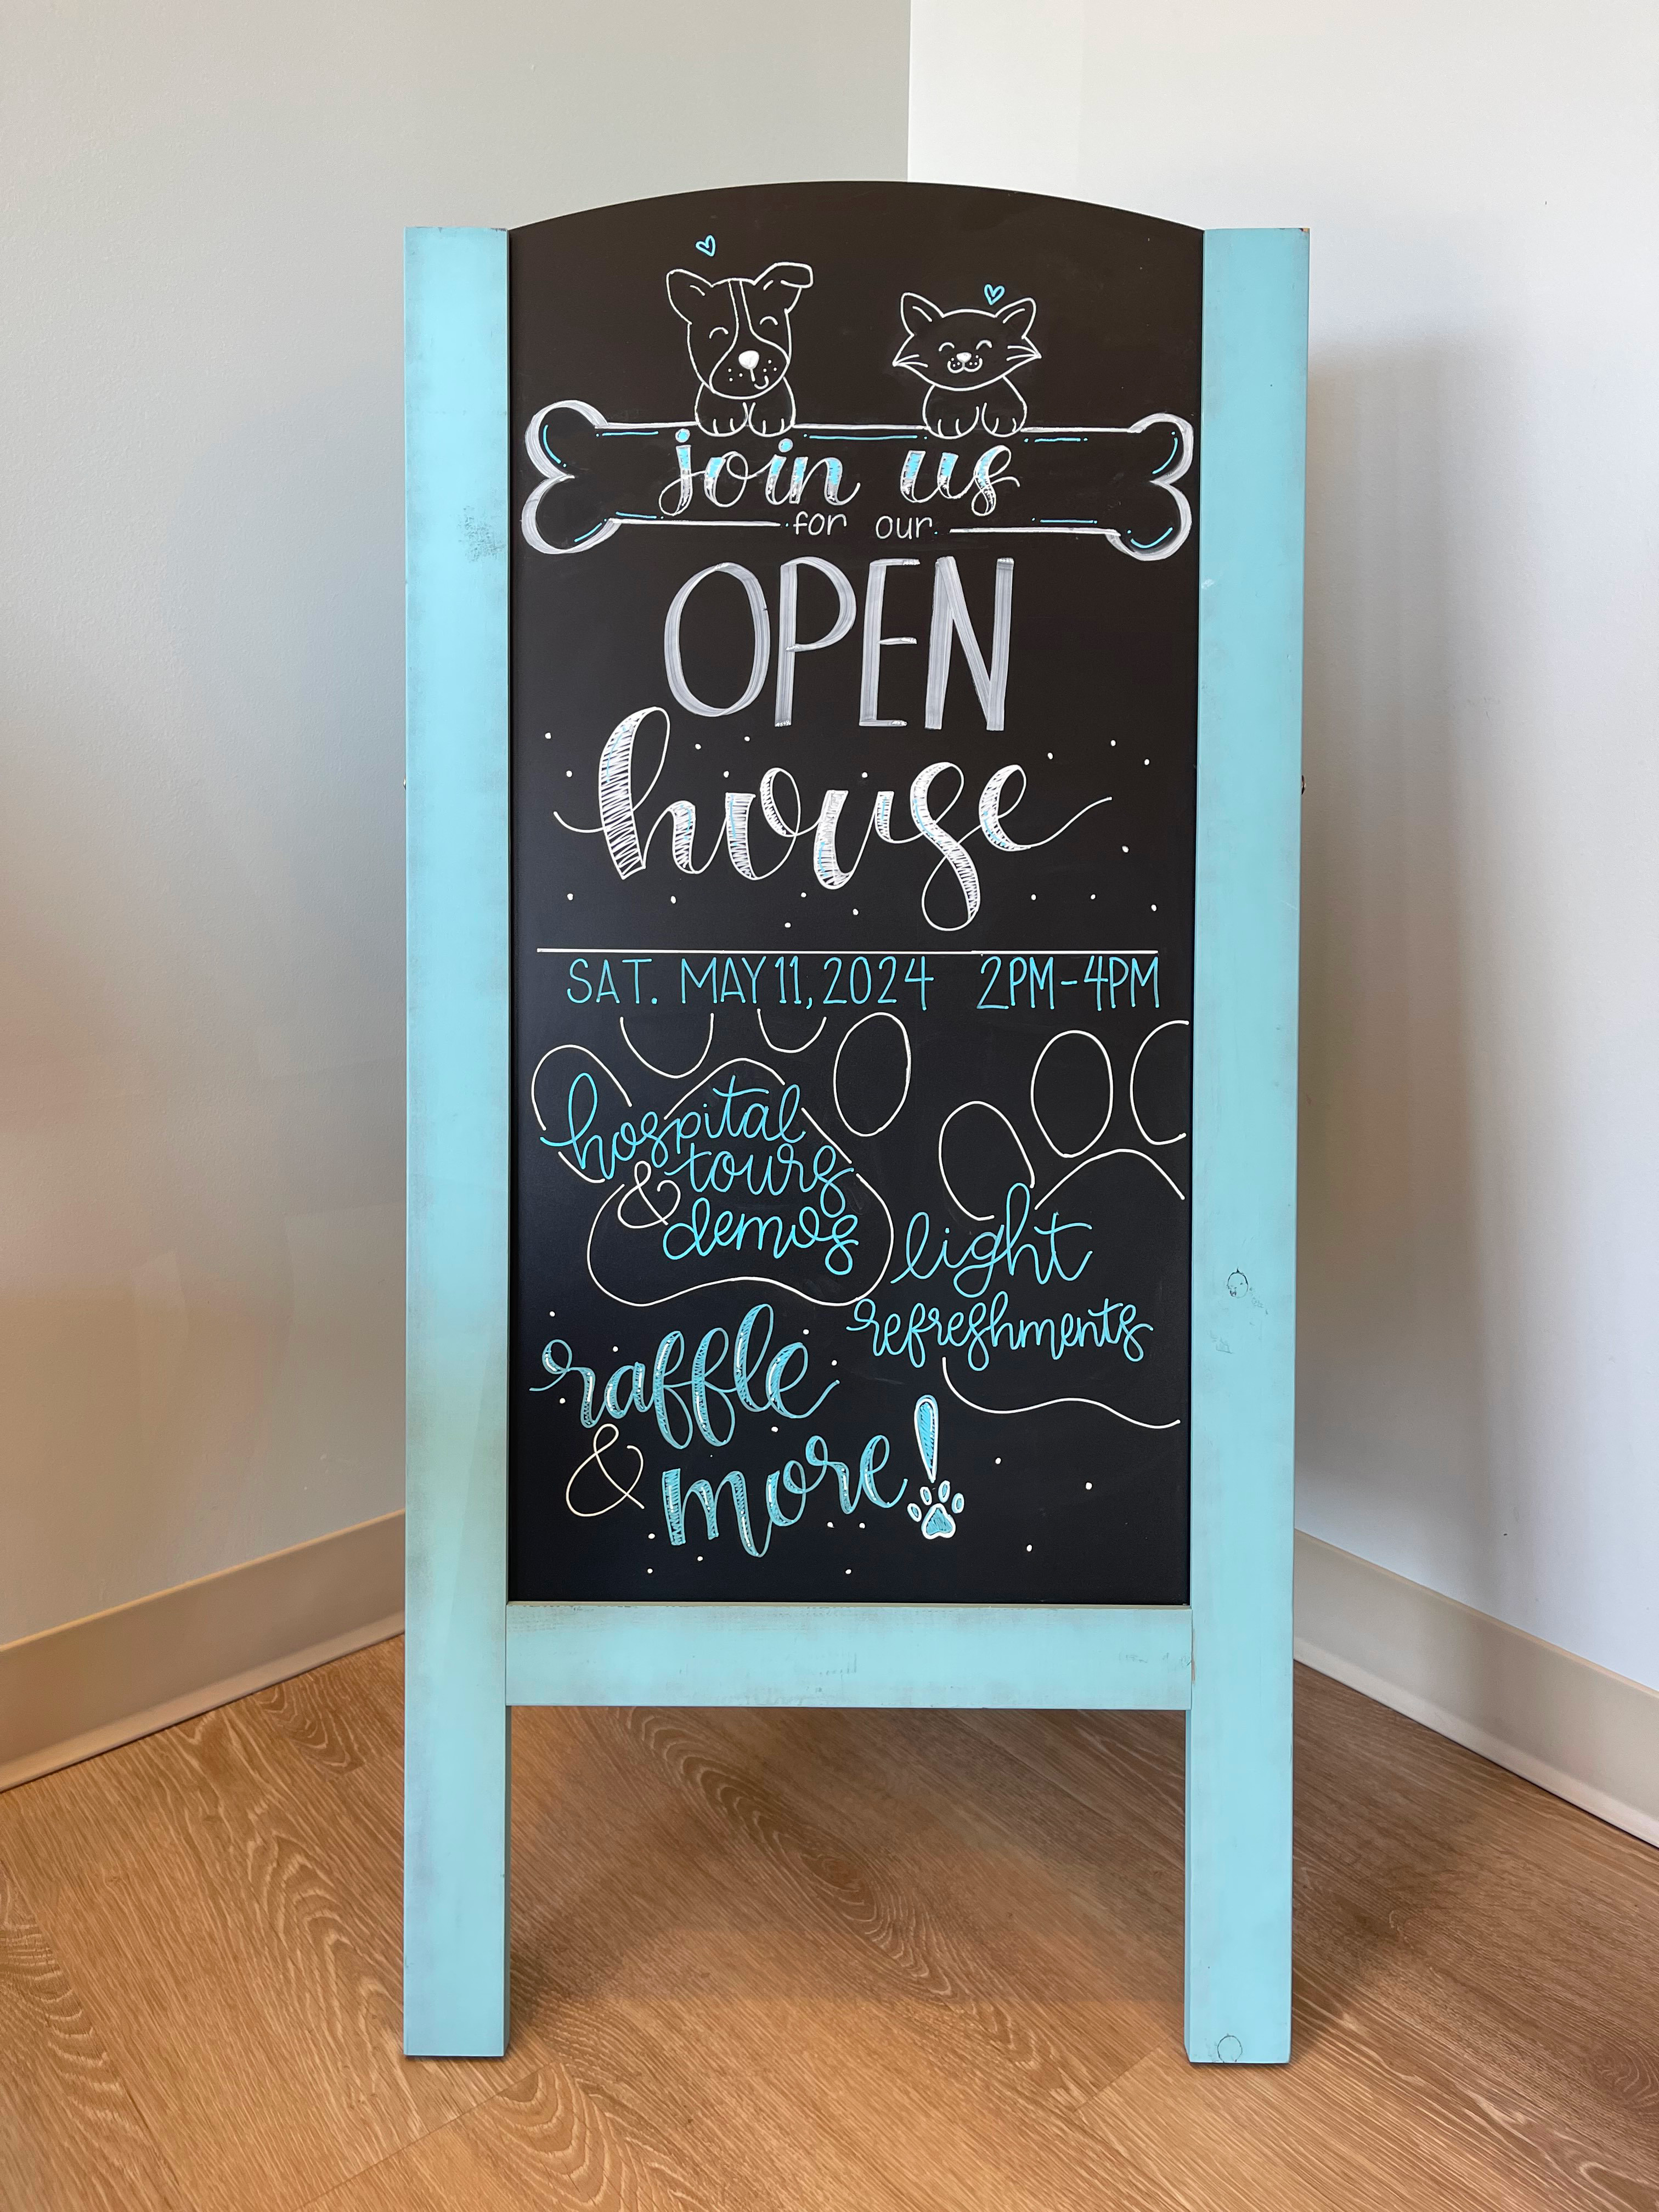 join us
for our
OPEN
house
SAT. MAY 11, 2024 2PM-4PM
hospital
tours
& demos
light
refreshments
raffle
& more!